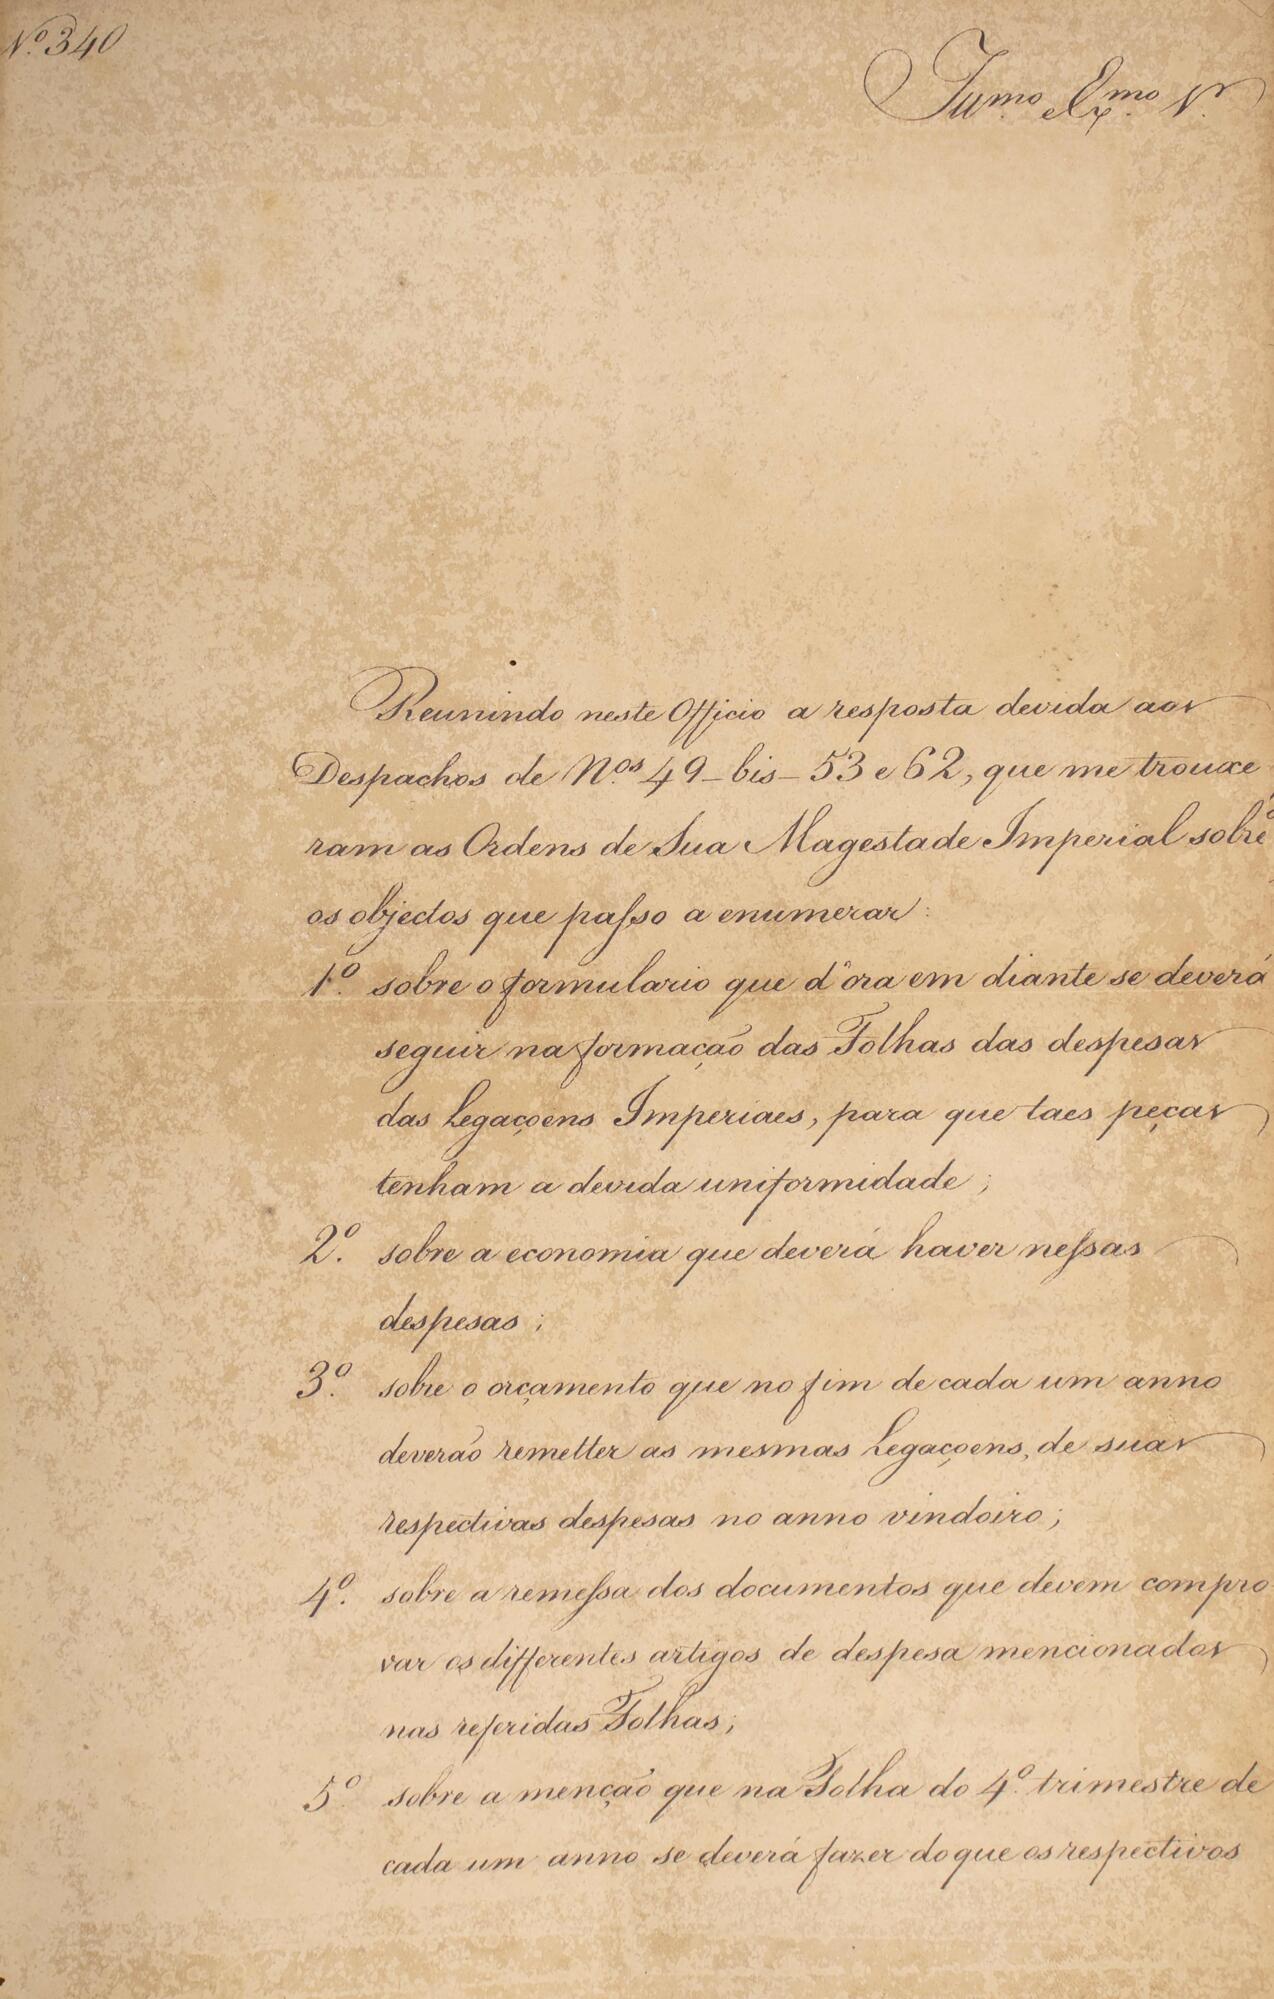 Nº. 340
Illmo. Exmo. Sr.
Reunindo neste Officio a resposta devida aos
Despachos de Nos. 49 - bis - 53 e 62, que me trouxe
ram as Ordens de Sua Magestade Imperial sobre
os objectos que passo a enumerar:
1º. sobre o formulario que d'ora em diante se deverá
seguir na formação das Folhas das despesas
das Legaçoens Imperiaes, para que taes peças
tenham a devida uniformidade;
2º. sobre a economia que deverá haver nessas
despesas;
3º. sobre o orçamento que no fim de cada um anno
deverão remetter as mesmas Legaçoens, de suas
respectivas despesas no anno vindoiro;
4º. sobre a remessa dos documentos que devem compro
var os differentes artigos de despesa mencionados
nas referidas Folhas;
5º. sobre a menção que na Folha do 4º. trimestre de
cada um anno se deverá fazer do que os respectivos